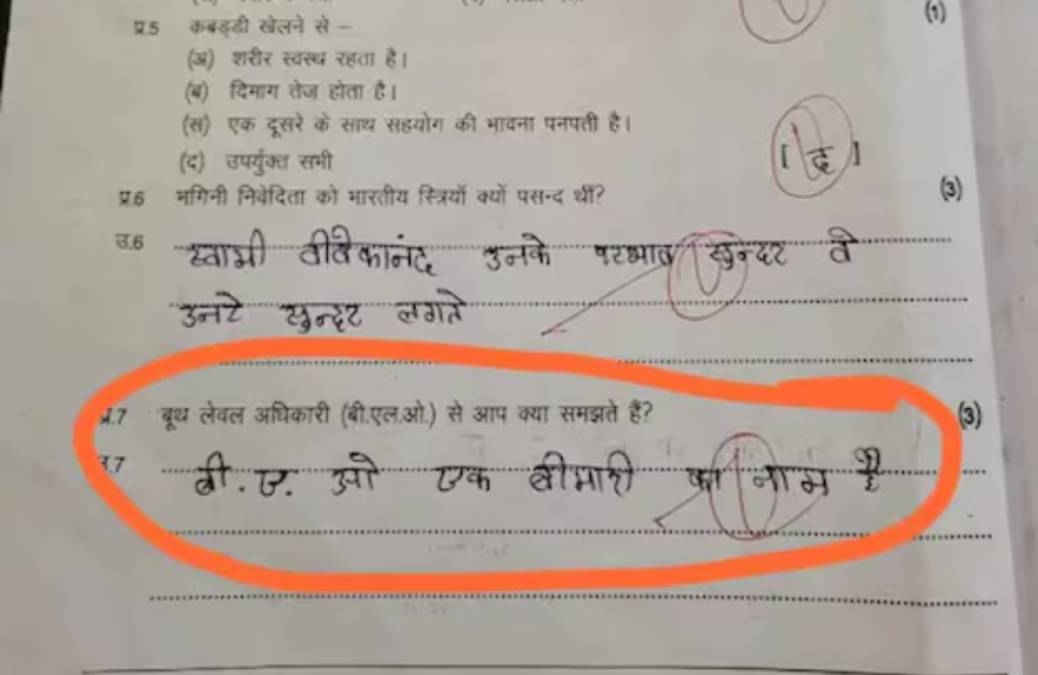 (1)
प्र.5 कबड्डी खेलने से –
(अ) शरीर स्वस्थ रहता है।
(ब) दिमाग तेज होता है।
(स) एक दूसरे के साथ सहयोग की भावना पनपती है।
(द) उपर्युक्त सभी [ द ]
प्र.6 भगिनी निवेदिता को भारतीय स्त्रियाँ क्यों पसन्द थीं? (3)
उ.6 स्वामी वीवेकानंद उनके परभाव सुन्दर वे
उनटे सुन्दर लगते
प्र.7 बूथ लेवल अधिकारी (बी.एल.ओ.) से आप क्या समझते हैं? (3)
उ.7 बी.ए. ओ एक बीमारी का नाम है